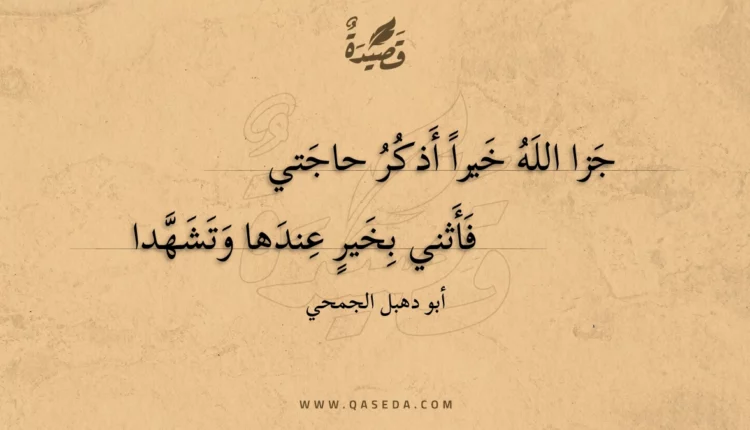 قَصِيْدَةٌ
جَزا اللَهُ خَيراً أَذكُرُ حاجَتي
فَأَثني بِخَيرٍ عِندَها وَتَشَهَّدا
أبو دهبل الجمحي
WWW.QASEDA.COM